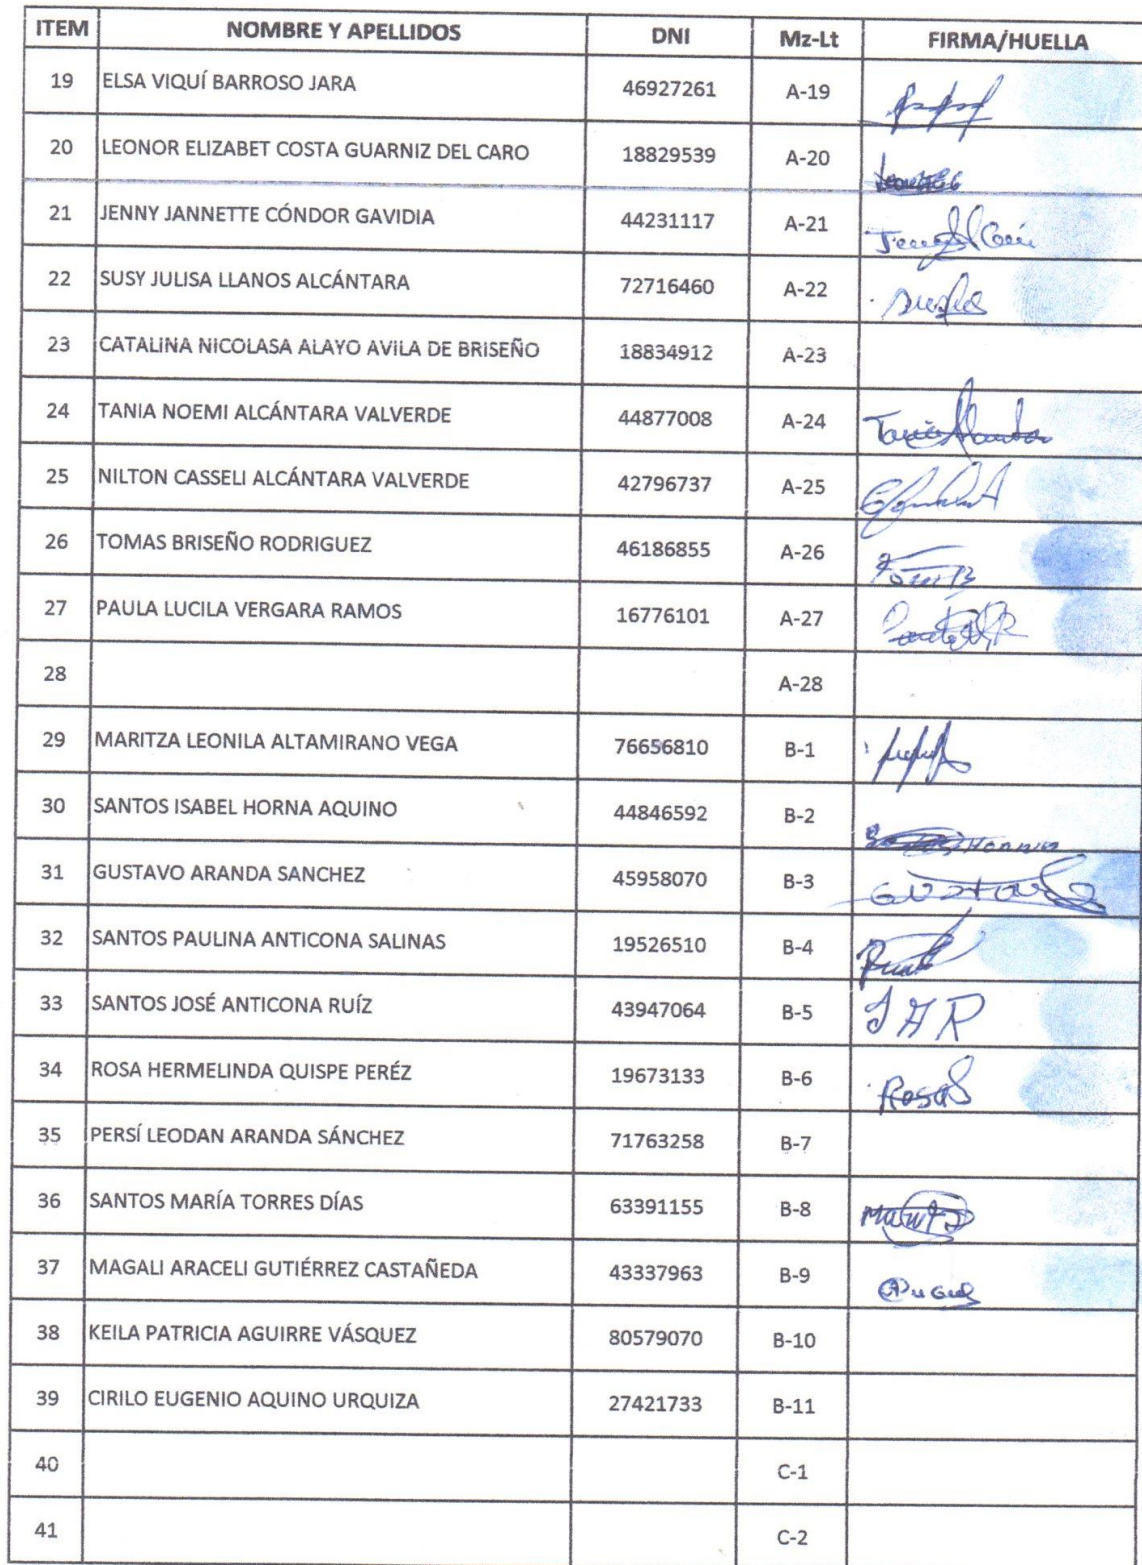 ITEM NOMBRE Y APELLIDOS DNI Mz-Lt FIRMA/HUELLA
19 ELSA VIQUÍ BARROSO JARA 46927261 A-19
20 LEONOR ELIZABET COSTA GUARNIZ DEL CARO 18829539 A-20
21 JENNY JANNETTE CÓNDOR GAVIDIA 44231117 A-21
22 SUSY JULISA LLANOS ALCÁNTARA 72716460 A-22
23 CATALINA NICOLASA ALAYO AVILA DE BRISEÑO 18834912 A-23
24 TANIA NOEMI ALCÁNTARA VALVERDE 44877008 A-24
25 NILTON CASSELI ALCÁNTARA VALVERDE 42796737 A-25
26 TOMAS BRISEÑO RODRIGUEZ 46186855 A-26
27 PAULA LUCILA VERGARA RAMOS 16776101 A-27
28 A-28
29 MARITZA LEONILA ALTAMIRANO VEGA 76656810 B-1
30 SANTOS ISABEL HORNA AQUINO 44846592 B-2
31 GUSTAVO ARANDA SANCHEZ 45958070 B-3
32 SANTOS PAULINA ANTICONA SALINAS 19526510 B-4
33 SANTOS JOSÉ ANTICONA RUÍZ 43947064 B-5
34 ROSA HERMELINDA QUISPE PERÉZ 19673133 B-6
35 PERSÍ LEODAN ARANDA SÁNCHEZ 71763258 B-7
36 SANTOS MARÍA TORRES DÍAS 63391155 B-8
37 MAGALI ARACELI GUTIÉRREZ CASTAÑEDA 43337963 B-9
38 KEILA PATRICIA AGUIRRE VÁSQUEZ 80579070 B-10
39 CIRILO EUGENIO AQUINO URQUIZA 27421733 B-11
40 C-1
41 C-2